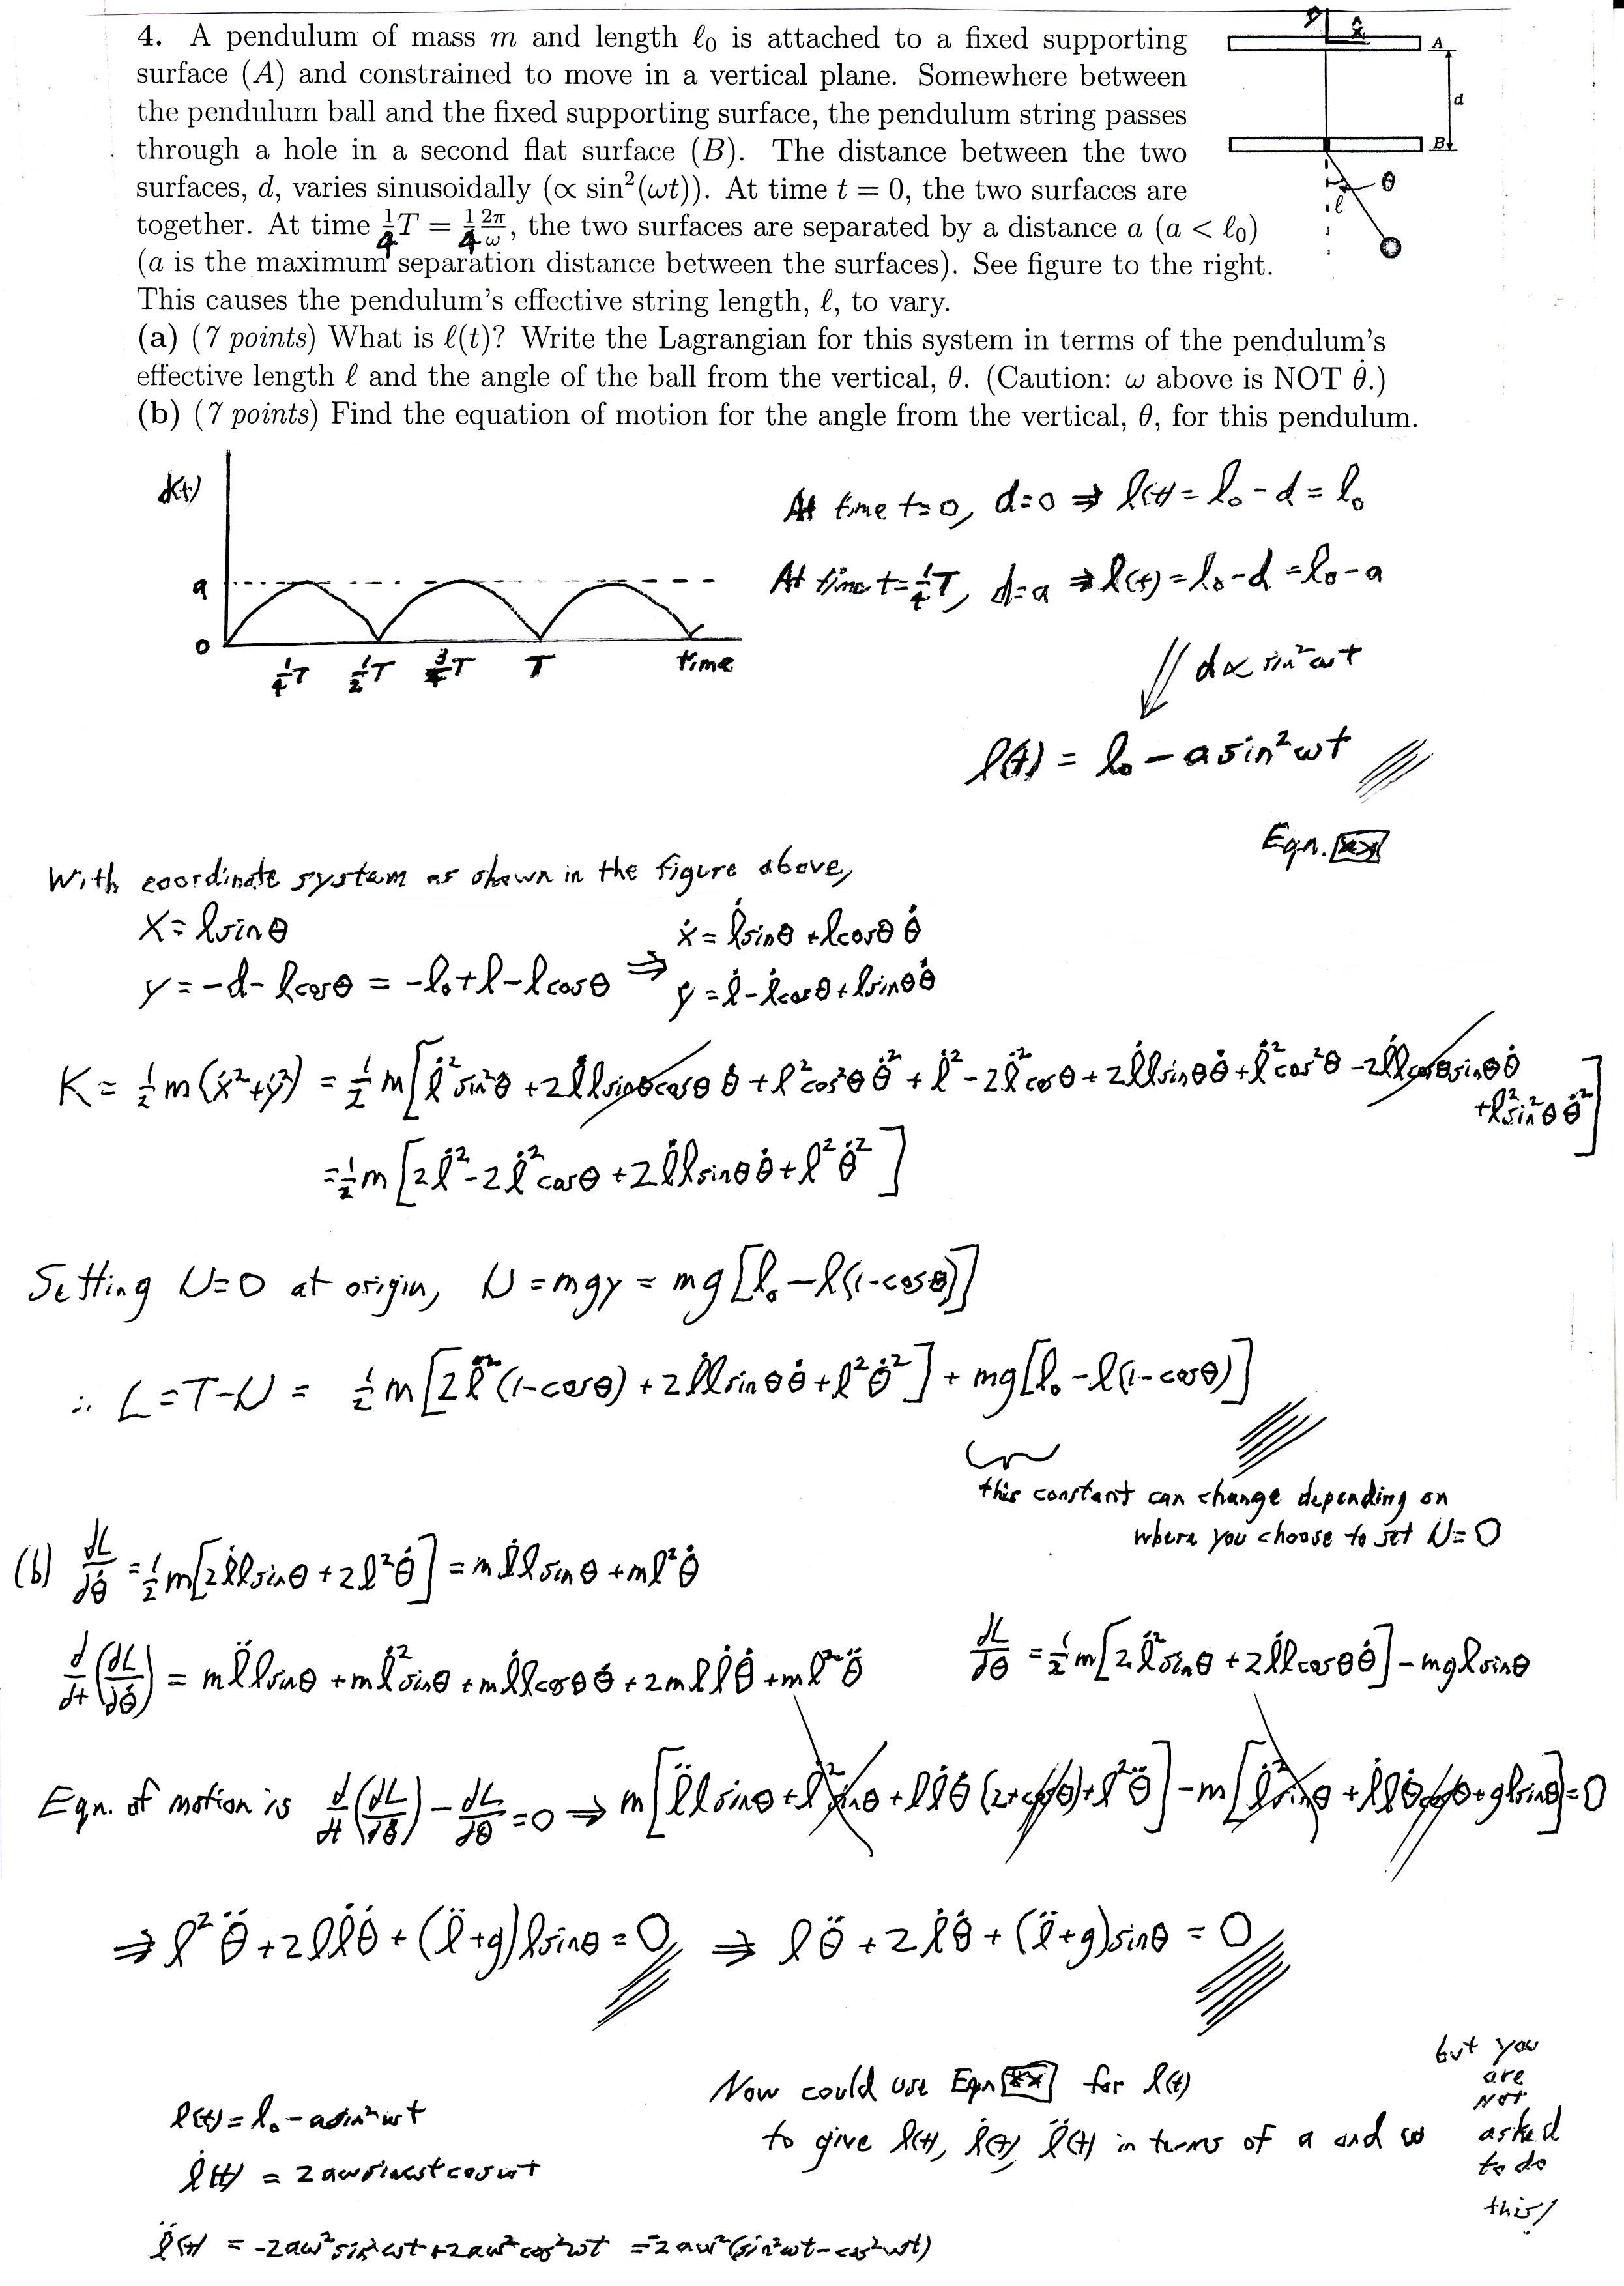 4. A pendulum of mass m and length ℓ₀ is attached to a fixed supporting
surface (A) and constrained to move in a vertical plane. Somewhere between
the pendulum ball and the fixed supporting surface, the pendulum string passes
through a hole in a second flat surface (B). The distance between the two
surfaces, d, varies sinusoidally (∝ sin²(ωt)). At time t = 0, the two surfaces are
together. At time ¼T = ¼ 2π/ω, the two surfaces are separated by a distance a (a < ℓ₀)
(a is the maximum separation distance between the surfaces). See figure to the right.
This causes the pendulum's effective string length, ℓ, to vary.
(a) (7 points) What is ℓ(t)? Write the Lagrangian for this system in terms of the pendulum's
effective length ℓ and the angle of the ball from the vertical, θ. (Caution: ω above is NOT θ̇.)
(b) (7 points) Find the equation of motion for the angle from the vertical, θ, for this pendulum.
ŷ x̂
A
d
B
θ
ℓ
d(t)
a
0
¼T ½T ¾T T time
At time t=0, d=0 ⇒ ℓ(t) = ℓ₀ - d = ℓ₀
At time t=¼T, d=a ⇒ ℓ(t) = ℓ₀-d = ℓ₀-a
d ∝ sin²ωt
ℓ(t) = ℓ₀ - a sin²ωt
Eqn. **
With coordinate system as shown in the figure above,
x = ℓ sinθ
ẋ = ℓ̇ sinθ + ℓ cosθ θ̇
y = -d - ℓ cosθ = -ℓ₀ + ℓ - ℓ cosθ ⇒ ẏ = ℓ̇ - ℓ̇ cosθ + ℓ sinθ θ̇
K = ½m(ẋ²+ẏ²) = ½m[ℓ̇² sin²θ + 2ℓ̇ℓ sinθ cosθ θ̇ + ℓ² cos²θ θ̇² + ℓ̇² - 2ℓ̇² cosθ + 2ℓ̇ℓ sinθ θ̇ + ℓ̇² cos²θ - 2ℓ̇ℓ cosθ sinθ θ̇
+ ℓ² sin²θ θ̇²]
= ½m[2ℓ̇² - 2ℓ̇² cosθ + 2ℓ̇ℓ sinθ θ̇ + ℓ²θ̇²]
Setting U=0 at origin, U = mgy = mg[ℓ₀ - ℓ(1-cosθ)]
∴ L = T-U = ½m[2ℓ̇²(1-cosθ) + 2ℓ̇ℓ sinθ θ̇ + ℓ²θ̇²] + mg[ℓ₀ - ℓ(1-cosθ)]
this constant can change depending on
where you choose to set U=0
(b) ∂L/∂θ̇ = ½m[2ℓ̇ℓ sinθ + 2ℓ²θ̇] = mℓ̇ℓ sinθ + mℓ²θ̇
d/dt(∂L/∂θ̇) = mℓ̈ℓ sinθ + mℓ̇² sinθ + mℓ̇ℓ cosθ θ̇ + 2mℓℓ̇θ̇ + mℓ²θ̈
∂L/∂θ = ½m[2ℓ̇² sinθ + 2ℓ̇ℓ cosθ θ̇] - mgℓ sinθ
Eqn. of motion is d/dt(∂L/∂θ̇) - ∂L/∂θ = 0 ⇒ m[ℓ̈ℓ sinθ + ℓ̇² sinθ + ℓℓ̇θ̇(2+cosθ) + ℓ²θ̈] - m[ℓ̇² sinθ + ℓ̇ℓθ̇ cosθ + gℓ sinθ] = 0
⇒ ℓ²θ̈ + 2ℓℓ̇θ̇ + (ℓ̈+g)ℓ sinθ = 0 ⇒ ℓθ̈ + 2ℓ̇θ̇ + (ℓ̈+g) sinθ = 0
Now could use Eqn ** for ℓ(t)
to give ℓ(t), ℓ̇(t), ℓ̈(t) in terms of a and ω
but you
are
NOT
asked
to do
this!
ℓ(t) = ℓ₀ - a sin²ωt
ℓ̇(t) = 2aω sinωt cosωt
ℓ̈(t) = -2aω² sin²ωt + 2aω² cos²ωt = -2aω²(sin²ωt - cos²ωt)